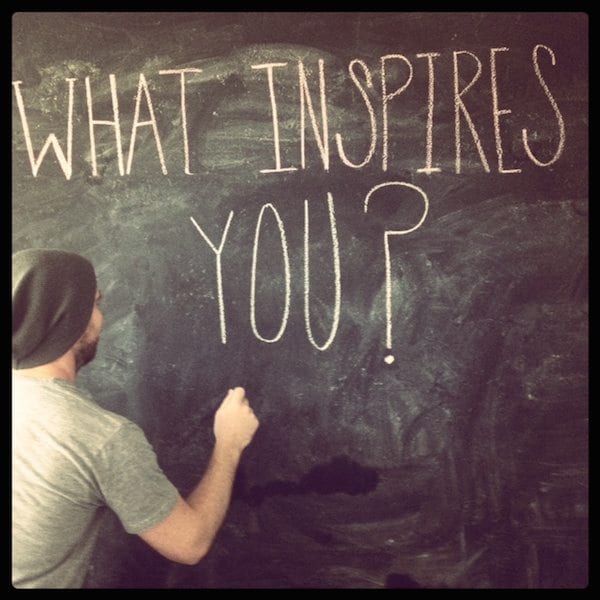 WHAT INSPIRES
YOU?